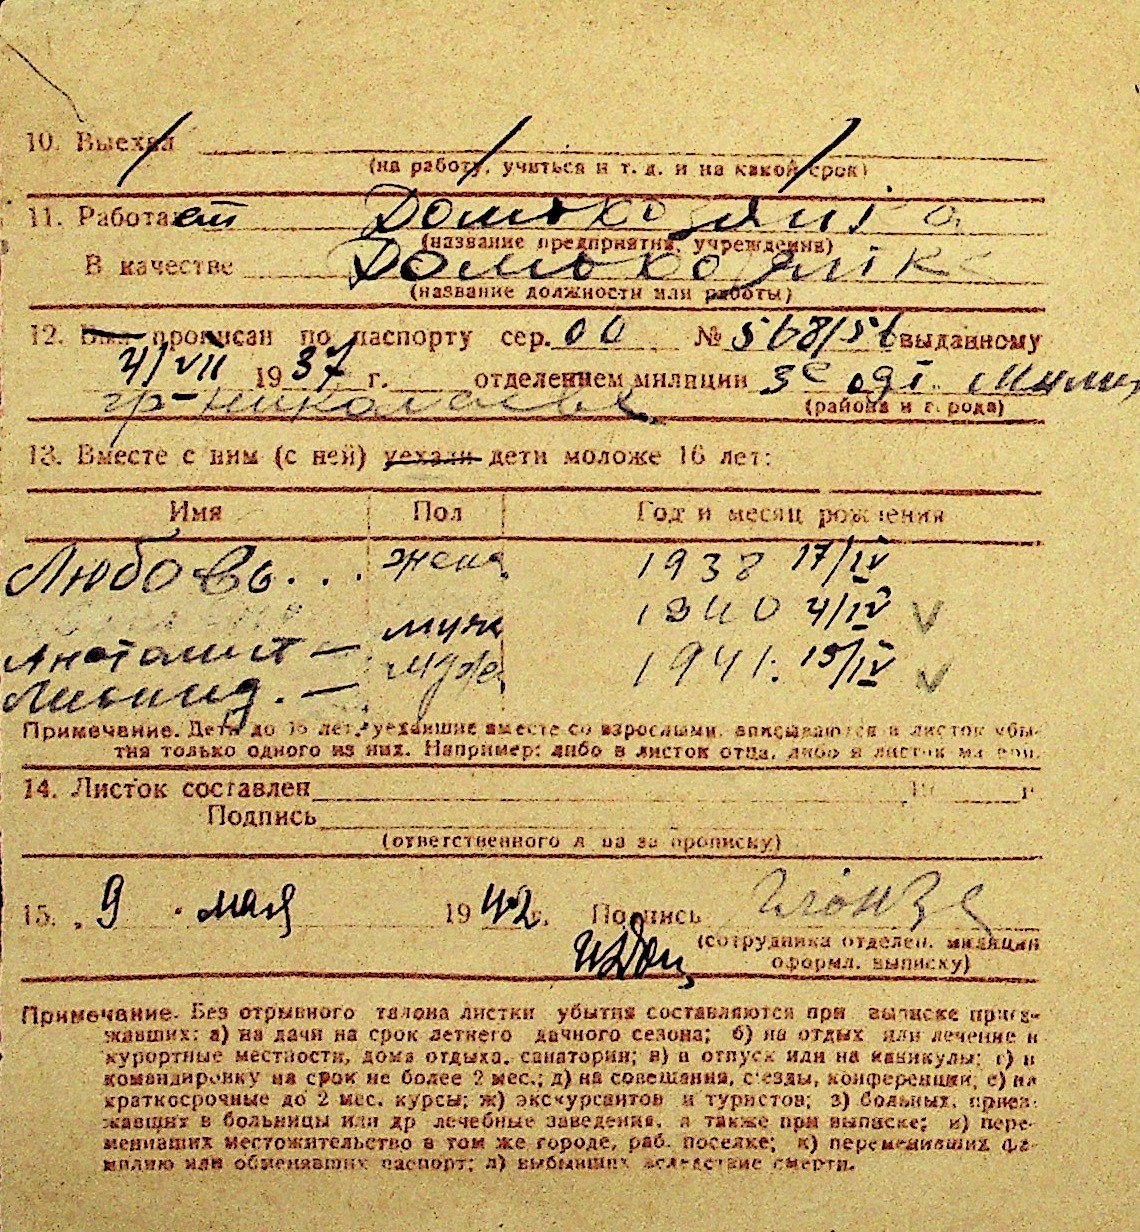 10. Выехал
(на работу, учиться и т. д. и на какой срок)
11. Работает Домохозяйка
(название предприятия, учреждения)
В качестве Домохозяйка
(название должности или работы)
12. Был прописан по паспорту сер. 00 № 568156 выданному
4/VII 1937 г. отделением милиции 3е отд. Милиц
гр-Николаева
(района и города)
13. Вместе с ним (с ней) уехали дети моложе 16 лет:
Имя Пол Год и месяц рождения
Любовь... жена 1938 17/IV
муж 1940 4/IV V
Анатолий – муж 1941. 15/IV V
Леонид. –
Примечание. Дети до 16 лет, уехавшие вместе со взрослыми, вписываются в листок убы-
тия только одного из них. Например: либо в листок отца, либо в листок матери.
14. Листок составлен 19 г.
Подпись
(ответственного лица за прописку)
15. „ 9 " мая 1942 г. Подпись
(сотрудника отделен. милиции
оформл. выписку)
Примечание. Без отрывного талона листки убытия составляются при выписке приез-
жавших: а) на дачи на срок летнего дачного сезона; б) на отдых или лечение в
курортные местности, дома отдыха, санатории; в) в отпуск или на каникулы; г) в
командировку на срок не более 2 мес.; д) на совещания, съезды, конференции; е) на
краткосрочные до 2 мес. курсы; ж) экскурсантов и туристов; з) больных, приез-
жавших в больницы или др лечебные заведения, а также при выписке; и) пере-
менивших местожительство в том же городе, раб. поселке; к) переменивших фа-
милию или обменявших паспорт; л) выбывших вследствие смерти.